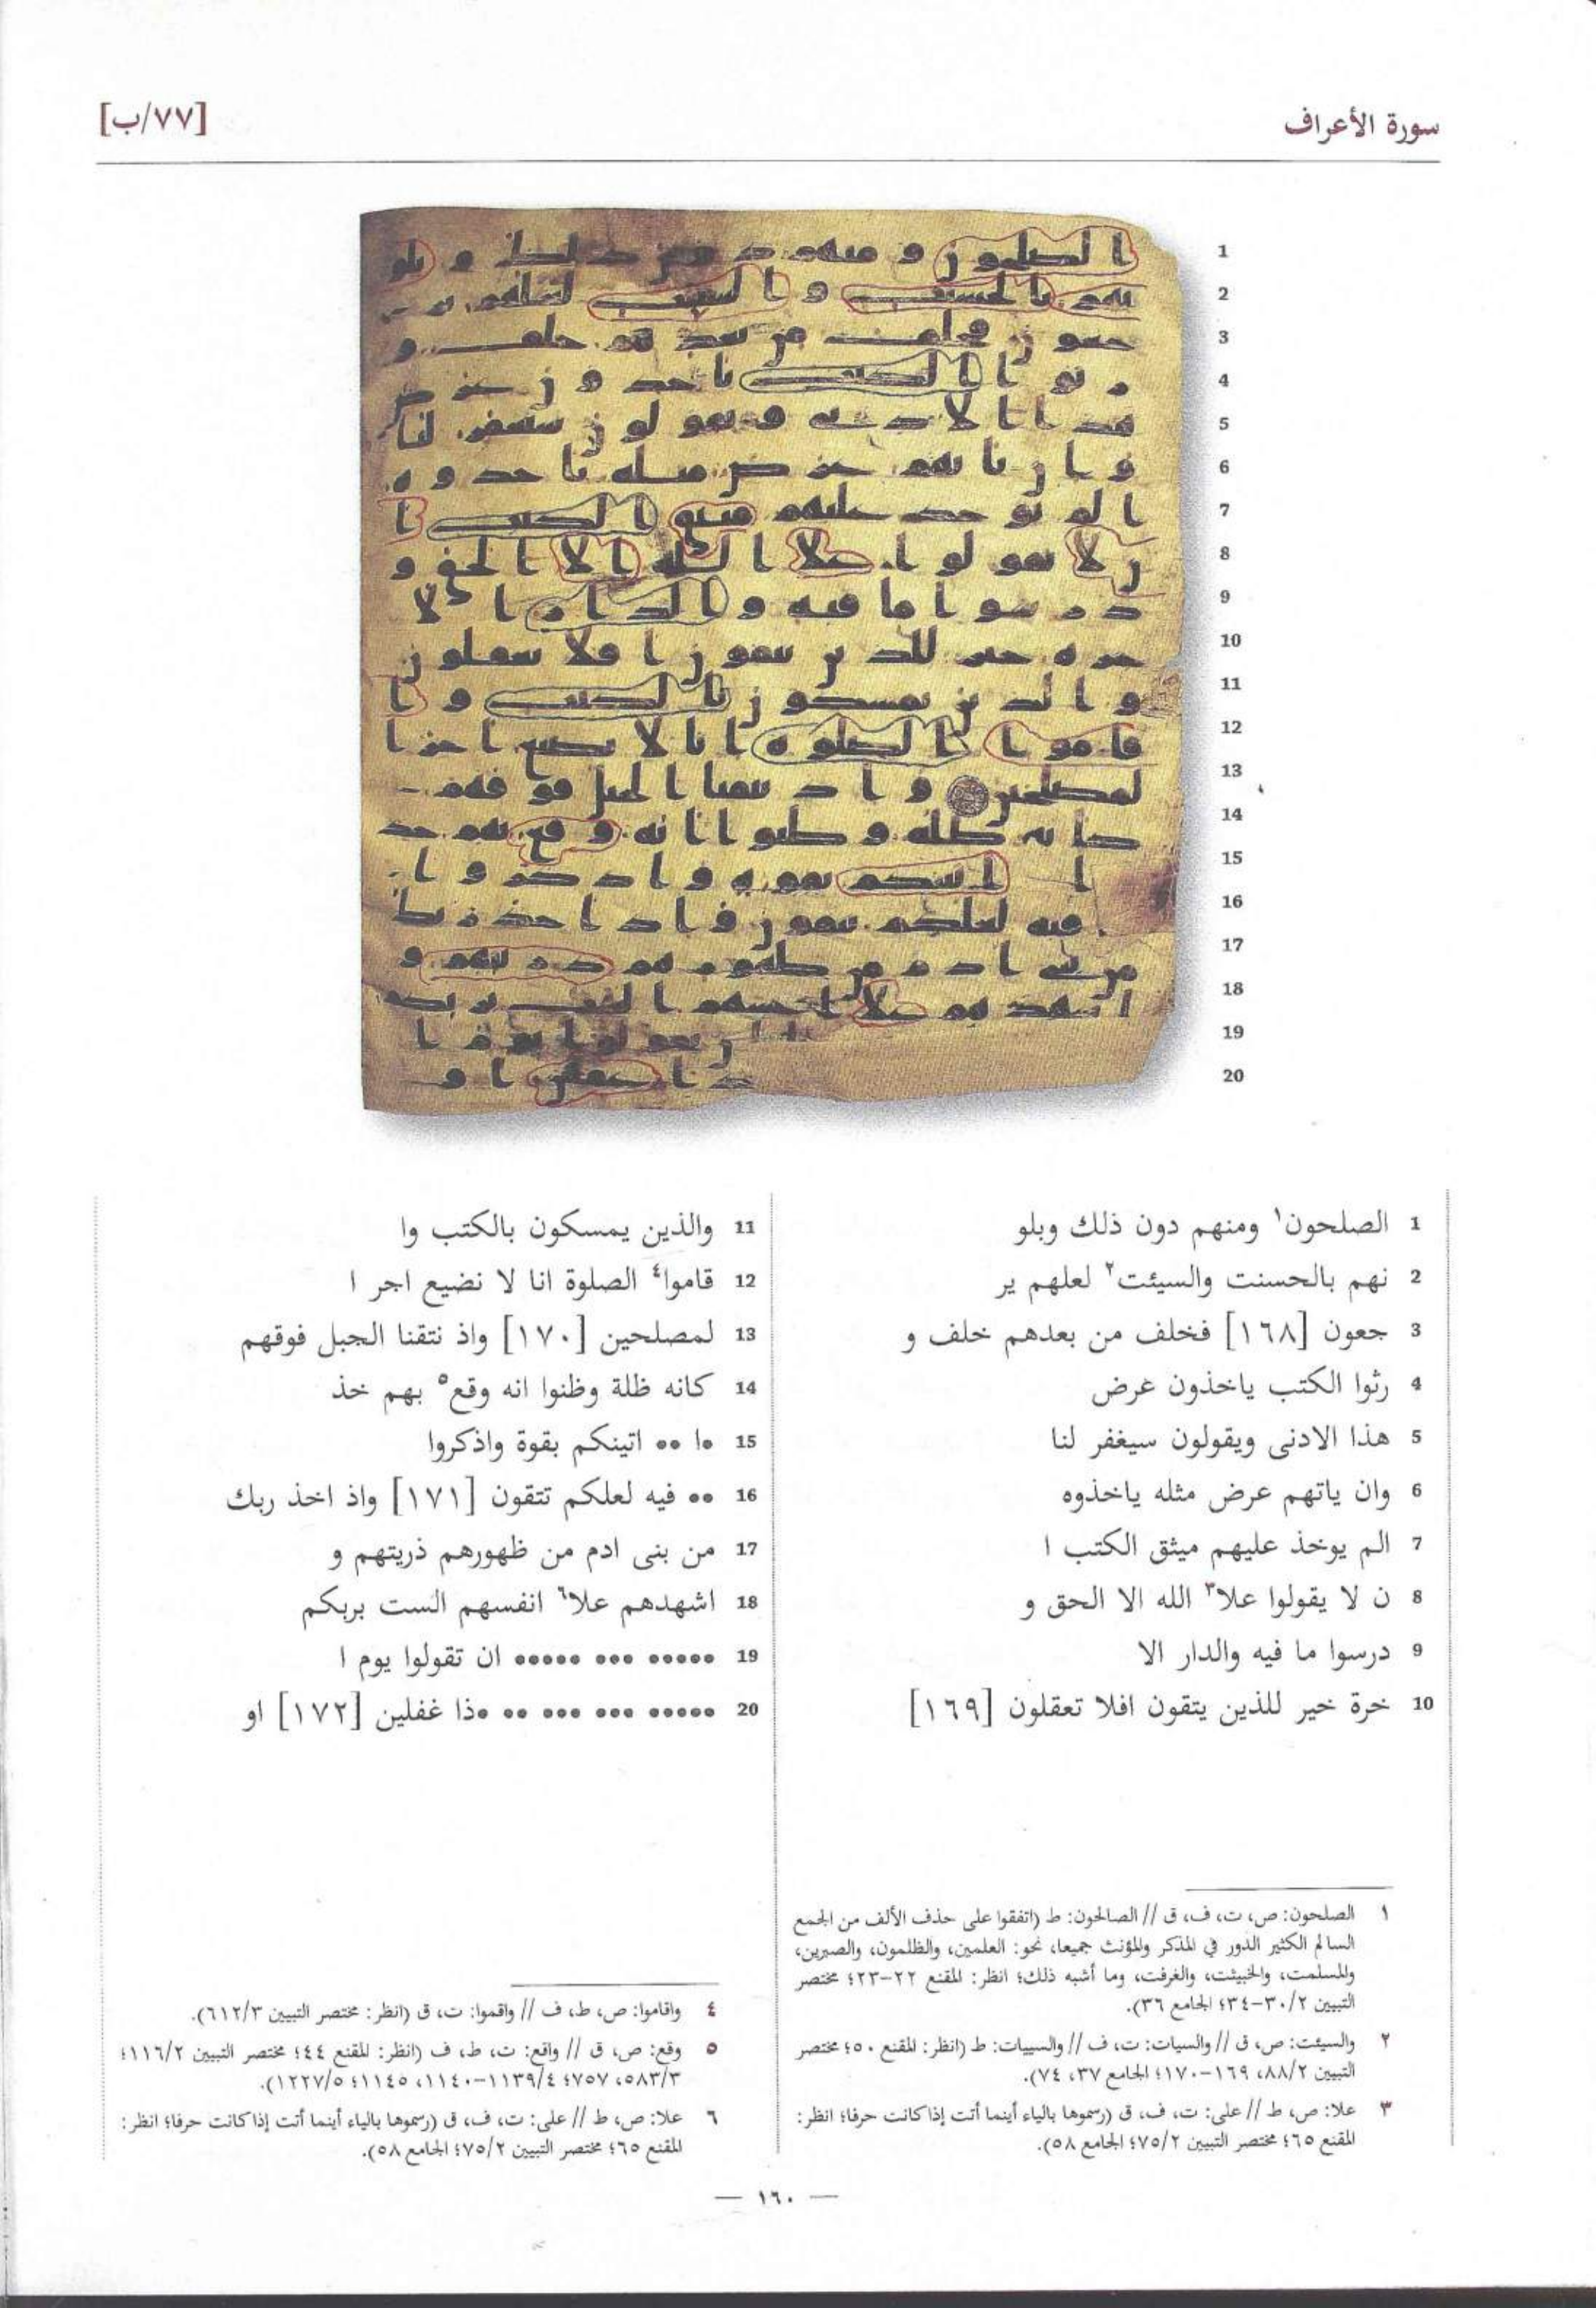 سورة الأعراف
[٧٧/ب]
1 الصلحون١ ومنهم دون ذلك وبلو
2 نهم بالحسنت والسيئت٢ لعلهم ير
3 جعون [١٦٨] فخلف من بعدهم خلف و
4 رثوا الكتب ياخذون عرض
5 هذا الادنى ويقولون سيغفر لنا
6 وان ياتهم عرض مثله ياخذوه
7 الم يوخذ عليهم ميثق الكتب ا
8 ن لا يقولوا علا٣ الله الا الحق و
9 درسوا ما فيه والدار الا
10 خرة خير للذين يتقون افلا تعقلون [١٦٩]
11 والذين يمسكون بالكتب وا
12 قاموا٤ الصلوة انا لا نضيع اجر ا
13 لمصلحين [١٧٠] واذ نتقنا الجبل فوقهم
14 كانه ظلة وظنوا انه وقع٥ بهم خذ
15 •ا •• اتينكم بقوة واذكروا
16 •• فيه لعلكم تتقون [١٧١] واذ اخذ ربك
17 من بنى ادم من ظهورهم ذريتهم و
18 اشهدهم علا٦ انفسهم الست بربكم
19 ••••• ••• ••••• ان تقولوا يوم ا
20 ••••• ••• ••• •• •ذا غفلين [١٧٢] او
١ الصلحون: ص، ت، ف، ق // الصالحون: ط (اتفقوا على حذف الألف من الجمع
السالم الكثير الدور في المذكر والمؤنث جميعا، نحو: العلمين، والظلمون، والصبرين،
والمسلمت، والخبيثت، والغرفت، وما أشبه ذلك؛ انظر: المقنع ٢٢-٢٣؛ مختصر
التبيين ٣٠/٢-٣٤؛ الجامع ٣٦).
٢ والسيئت: ص، ق // والسيات: ت، ف // والسييات: ط (انظر: المقنع ٥٠؛ مختصر
التبيين ٨٨/٢، ١٦٩-١٧٠؛ الجامع ٣٧، ٧٤).
٣ علا: ص، ط // على: ت، ف، ق (رسموها بالياء أينما أتت إذا كانت حرفا؛ انظر:
المقنع ٦٥؛ مختصر التبيين ٧٥/٢؛ الجامع ٥٨).
٤ واقاموا: ص، ط، ف // واقموا: ت، ق (انظر: مختصر التبيين ٦١٢/٣).
٥ وقع: ص، ق // واقع: ت، ط، ف (انظر: المقنع ٤٤؛ مختصر التبيين ١١٦/٢؛
٥٨٣/٣، ٧٥٧؛ ١١٣٩/٤-١١٤٠، ١١٤٥؛ ١٢٢٧/٥).
٦ علا: ص، ط // على: ت، ف، ق (رسموها بالياء أينما أتت إذا كانت حرفا؛ انظر:
المقنع ٦٥؛ مختصر التبيين ٧٥/٢؛ الجامع ٥٨).
— ١٦٠ —